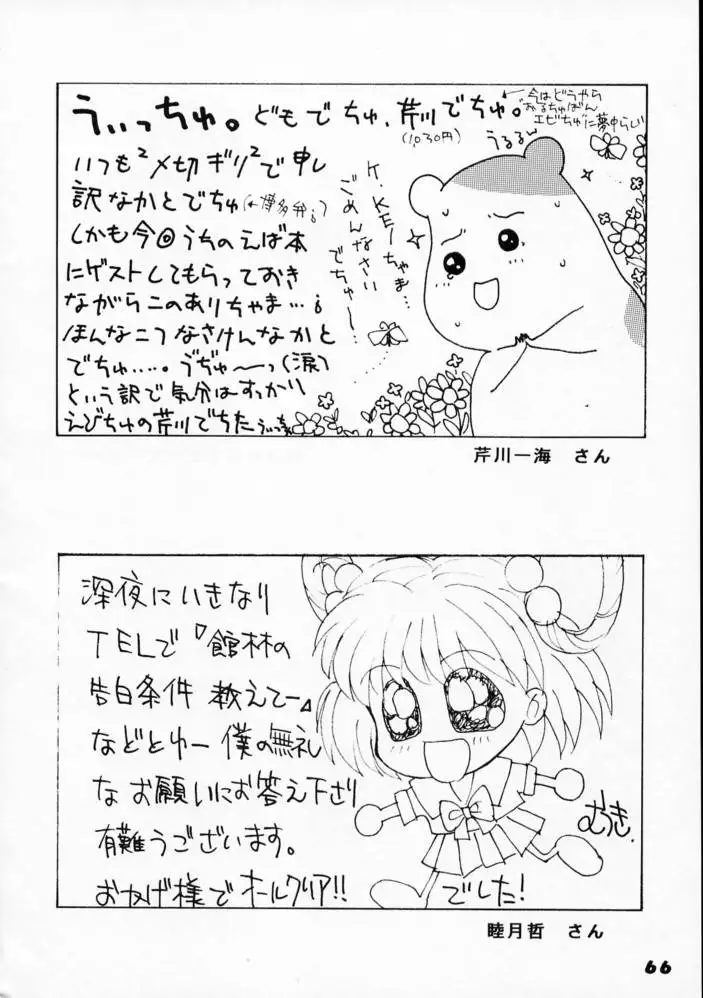 うぃっちゅ。どもでちゅ、芹川でちゅ。
(1030円)
←今はどうやら
おるちゅばん
エビちゅに夢中らしい
うるるん
いつも²〆切ギリ²で申し
訳なかとでちゅ(←博多弁。)
しかも今回うちのえば本
にゲストしてもらっておき
ながらこのありちゃま…。
ほんなこつなさけんなかと
でちゅ…。うぢゅ〜っ(涙)
という訳で気分はすっかり
えびちゅの芹川でちた
うぃっちゅ
K.KEIちゃま…
ごめんなさい
でちゅ〜…
芹川一海 さん
深夜にいきなり
TELで『館林の
告白条件 教えてー』
などとゆー僕の無礼
なお願いにお答え下さり
有難うございます。
おかげ様でオールクリア!! でした!
むつき.
睦月哲 さん
66